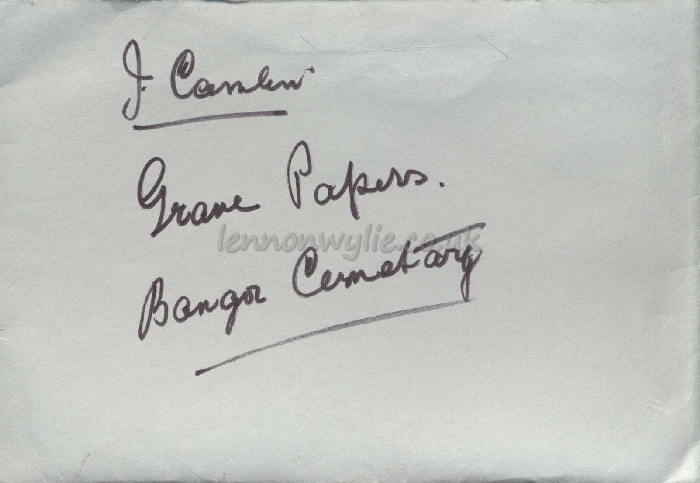 J. 
Grave Papers.
lennonwylie.co.uk
Bangor Cemetary